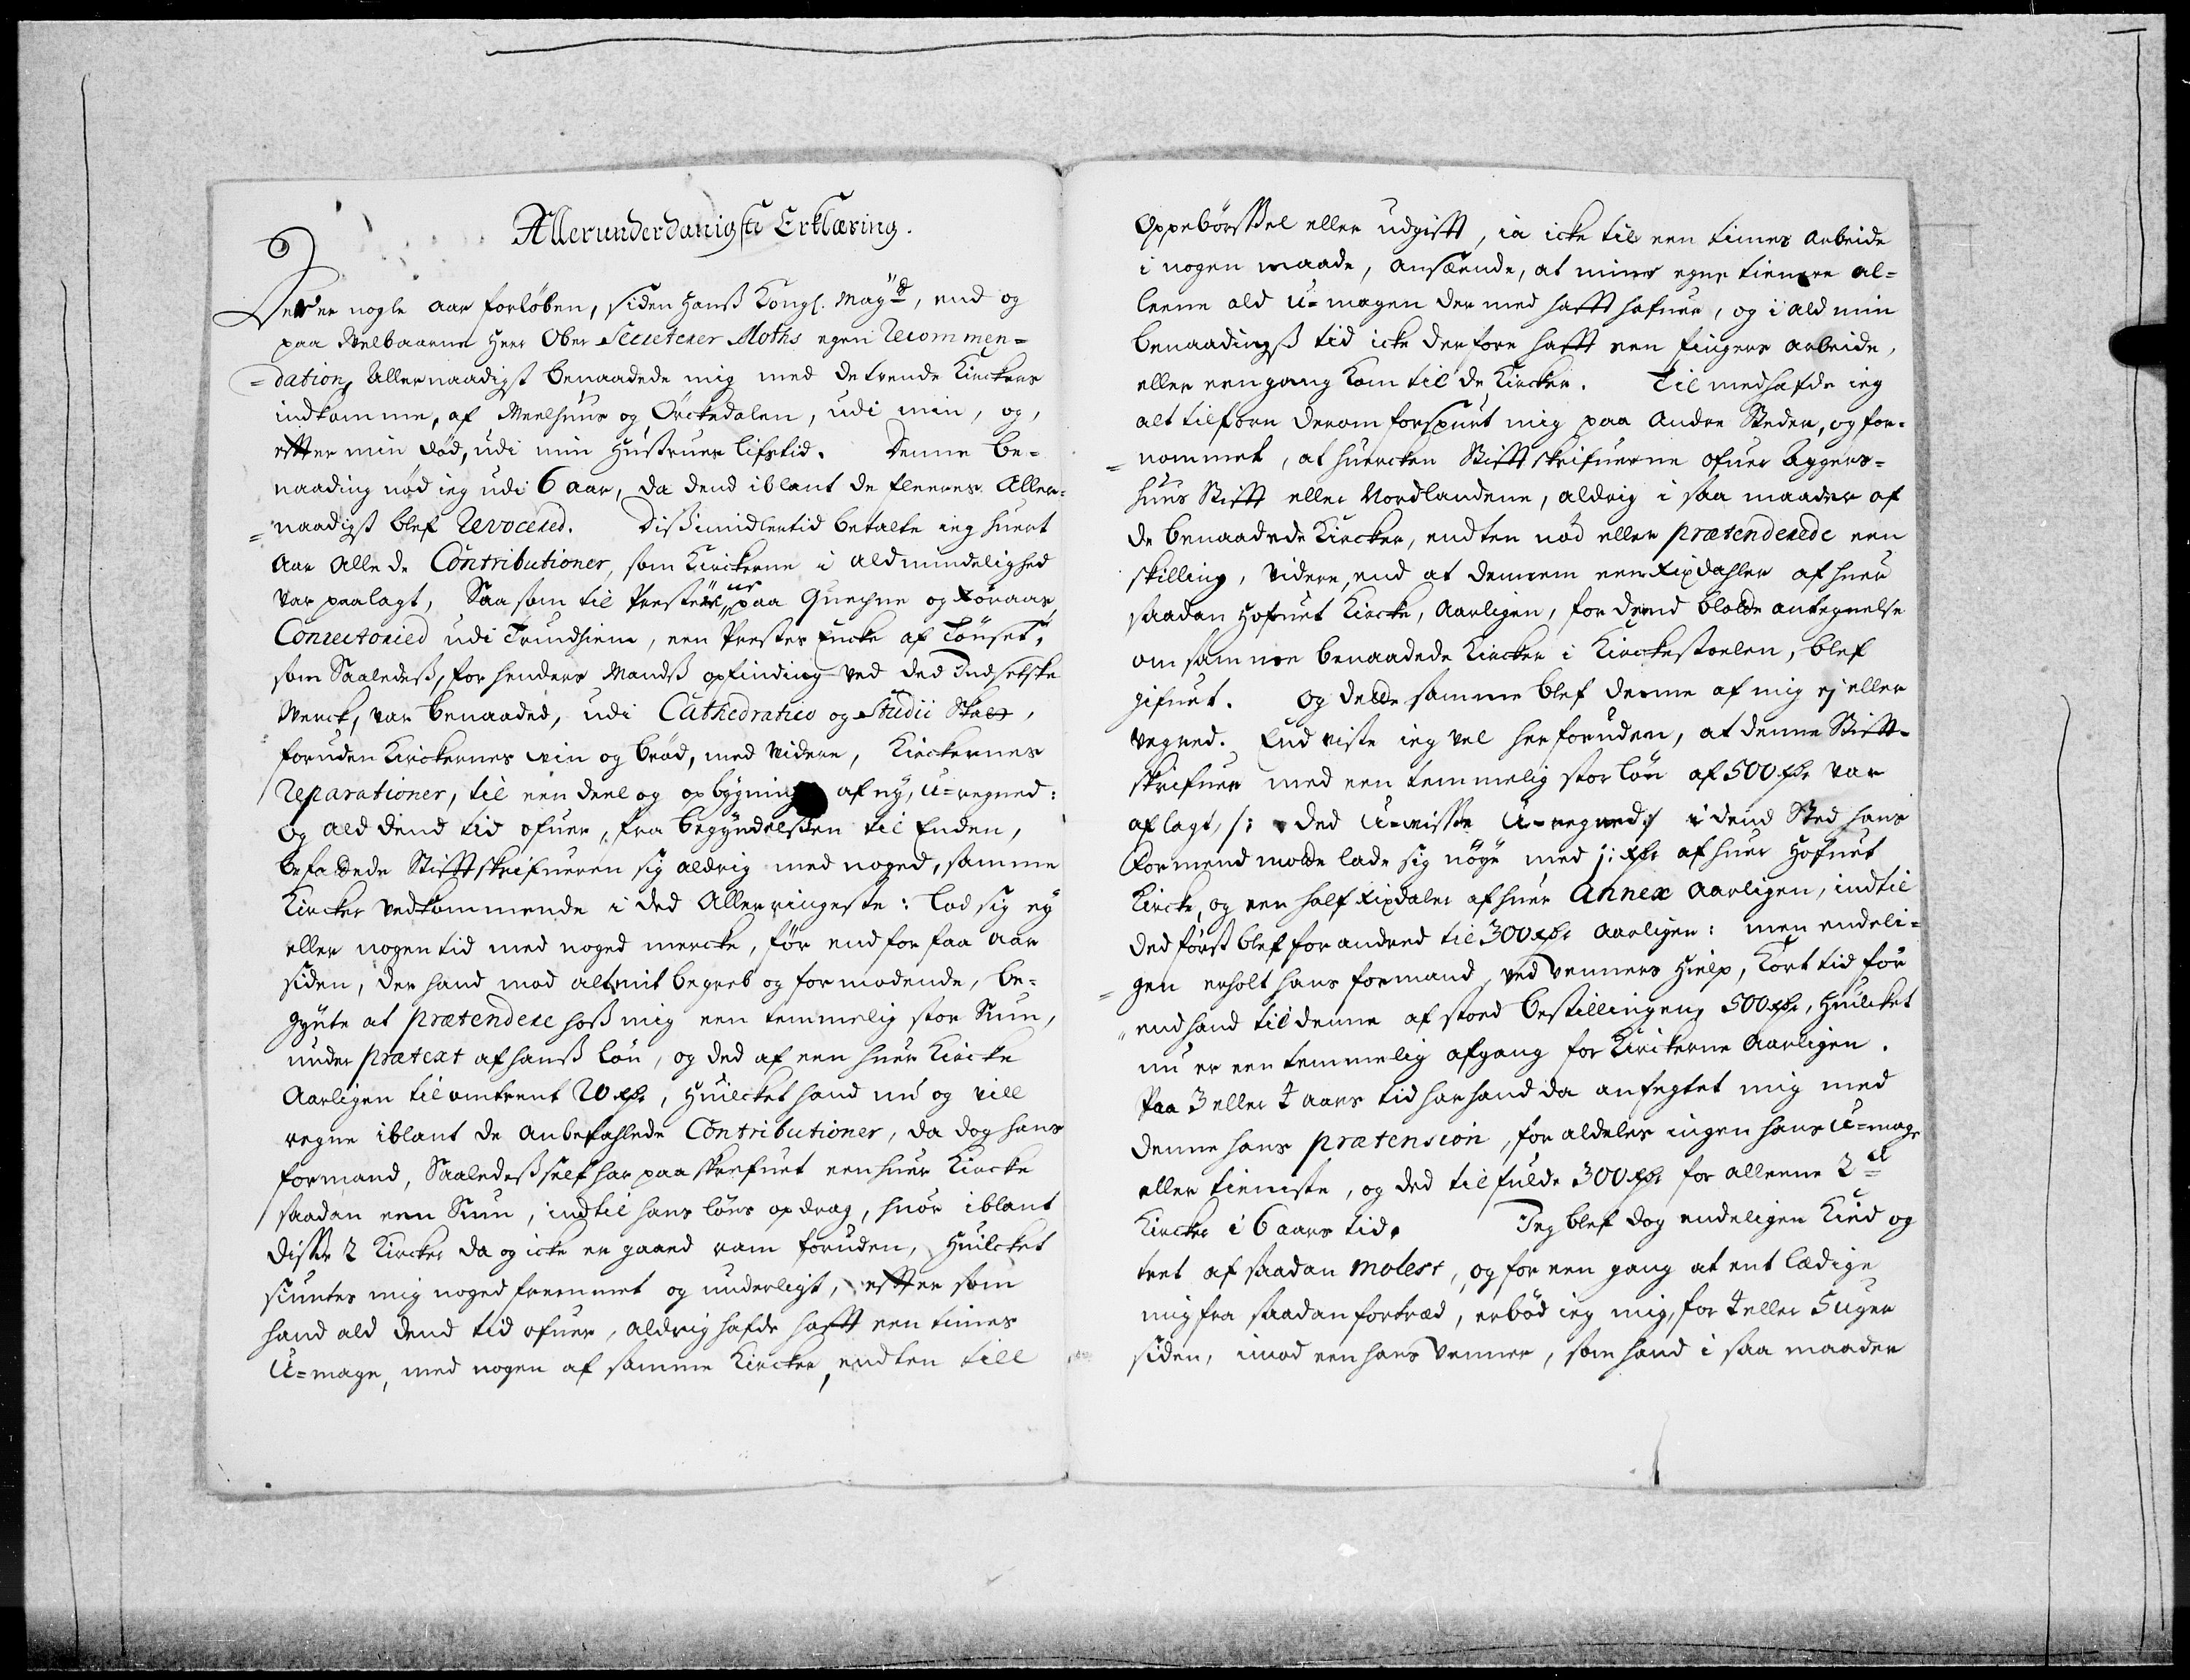 Allerunderdanigste Erklæring.
Det er nogle aar forløben, siden Hanß Kongl. May:tt, end og
paa Velbaarne Herr Ober Secreterer Moths egen Recommen=
=dation, Allernaadigst benaadede mig med de tvende Kirckers
indkomme, af Meelhuus og Örckedalen, udi min, og,
efter min død, udi min Hustrues lifstid. Denne be=
naading nød ieg udi 6 aar, da dend iblant de fleeres Aller=
=naadigst blef Revocered. Dissimidlertid betalte ieg huert
Aar alle de Contributioner, som Kirckerne i aldmindelighed
var paalagt, Saa som til
Conrectoried udi Trundhiem, een Prestes Encke af Tönset,
som Saaledeß, for hendes Mandß opfinding ved ded Indsetske
Verck, var benaaded, udi Cathedratico og Studii Skat,
foruden Kirckernes viin og brød, med videre, Kirckernes
Reparationer, til een deel og opbygning af ny, U=regned:
og ald dend tid ofuer, fra begyndelsen til Enden,
befattede Stiftskrifueren sig aldrig med noged, samme
Kircker vedkommende i ded Allerringeste: lod sig ey
eller nogen tid med noged mercke, før end for faa aar
siden, der hand mod alt mit begreb og formodende, be=
gynte at prætendere hoß mig een temmelig stor Sum,
under prætext af hanß løn, og ded af een huer Kircke
Aarligen til omtrent 20 Rdr, Huilcket hand nu og vill
regne iblant de Anbefahlede Contributioner, da dog hans
formand, Saaledeß self har paaskrefuet een huer Kircke
saadan een Sum, indtil hans løns opdrag, huor iblant
disse 2 Kircker da og icke er gaaed ram foruden, Huilcket
siuntes mig noged fremmet og underligt, efter som
hand ald dend tid ofuer, aldrig hafde haft een times
U=mage, med nogen af samme Kircker, endten till
Oppebörssel eller udgift, ia icke til een times arbeide
i nogen maade, anseende, at mine egne tienere al=
leene ald U=magen der med haft hafuer, og i ald min
benaadingß tid icke derfore haft een fingers arbeide,
eller eengang kom til de Kircker. Til med hafde ieg
alt tilforn derom forspurt mig paa andre Steder, og for=
=nommet, at huercken Stiftskrifuerne ofuer Aggers=
huus Stift eller Nordlandene, aldrig i saa maader af
de benaadede Kircker, endten nød eller prætenderede een
skilling, videre, end at dennem een Rixdahler af huer
saadan Hofuet Kircke, Aarligen, for dend blotte antegnelse
om samme benaadede Kircker i Kirckestoelen, blef
gifuet. Og dette samme blef denne af mig ej eller
vegred. End viste ieg vel her foruden, at denne Stift=
skrifuer med een temmelig stor løn af 500 Rdr var
aflagt, /: ded U=visse U=regned :/ i dend Sted hans
Formend motte lade sig nøye med 1: Rdr af huer Hofuet
Kircke, og een half Rixdaler af huer Annex Aarligen, indtil
ded først blef forandred til 300 Rdr Aarligen: men endeli=
=gen erholt hans formand, ved venners Hielp, kort tid før
end hand til denne afstoed bestillingen, 500 Rdr, Huilcket
nu er een temmelig afgang for Kirckerne Aarligen.
Paa 3 eller 4 aars tid har hand da anfegtet mig med
denne hans prætension, for aldeles ingen hans U=mage
eller tieneste, og ded til fulde 300 Rdr for alleene 2de
Kircker i 6 aars tid. Ieg blef dog endeligen Kied og
tret af saadan molest, og for een gang at entlædige
mig fra saadan fortræd, erbød ieg mig, for 4 eller 5 uger
siden, imod een hans venner, som hand i saa maader